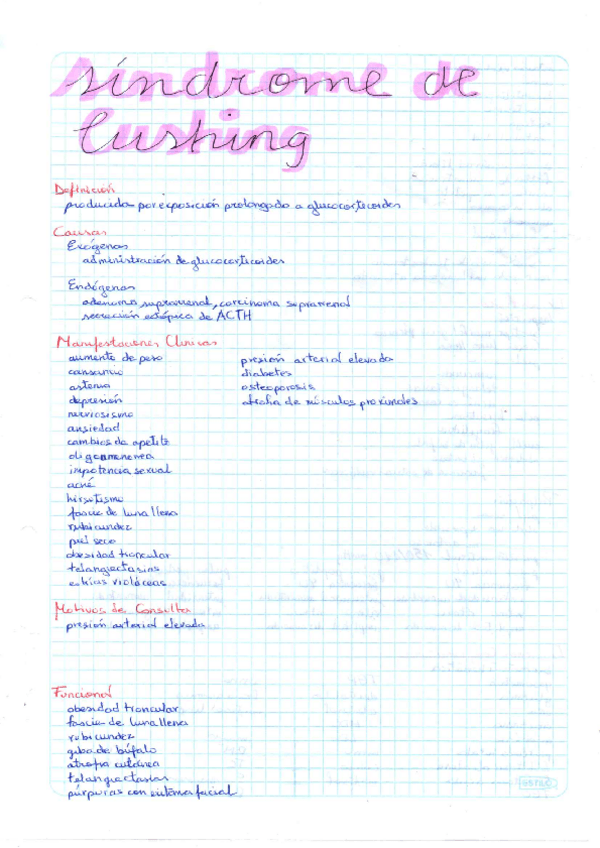 síndrome de
Cushing
Definición
producida por exposición prolongada a glucocorticoides
Causas
Exógenas
administración de glucocorticoides
Endógenas
adenoma suprarrenal, carcinoma suprarrenal
secreción ectópica de ACTH
Manifestaciones Clínicas
aumento de peso
presión arterial elevada
cansancio
diabetes
astenia
osteoporosis
depresión
atrofia de músculos proximales
nerviosismo
ansiedad
cambios de apetito
oligomenorrea
impotencia sexual
acné
hirsutismo
fascie de luna llena
rubicundez
piel seca
obesidad troncular
telangiectasias
estrías violáceas
Motivos de Consulta
presión arterial elevada
Funcional
obesidad troncular
fascie de luna llena
rubicundez
giba de búfalo
atrofia cutánea
telangiectasias
púrpuras con eritema facial